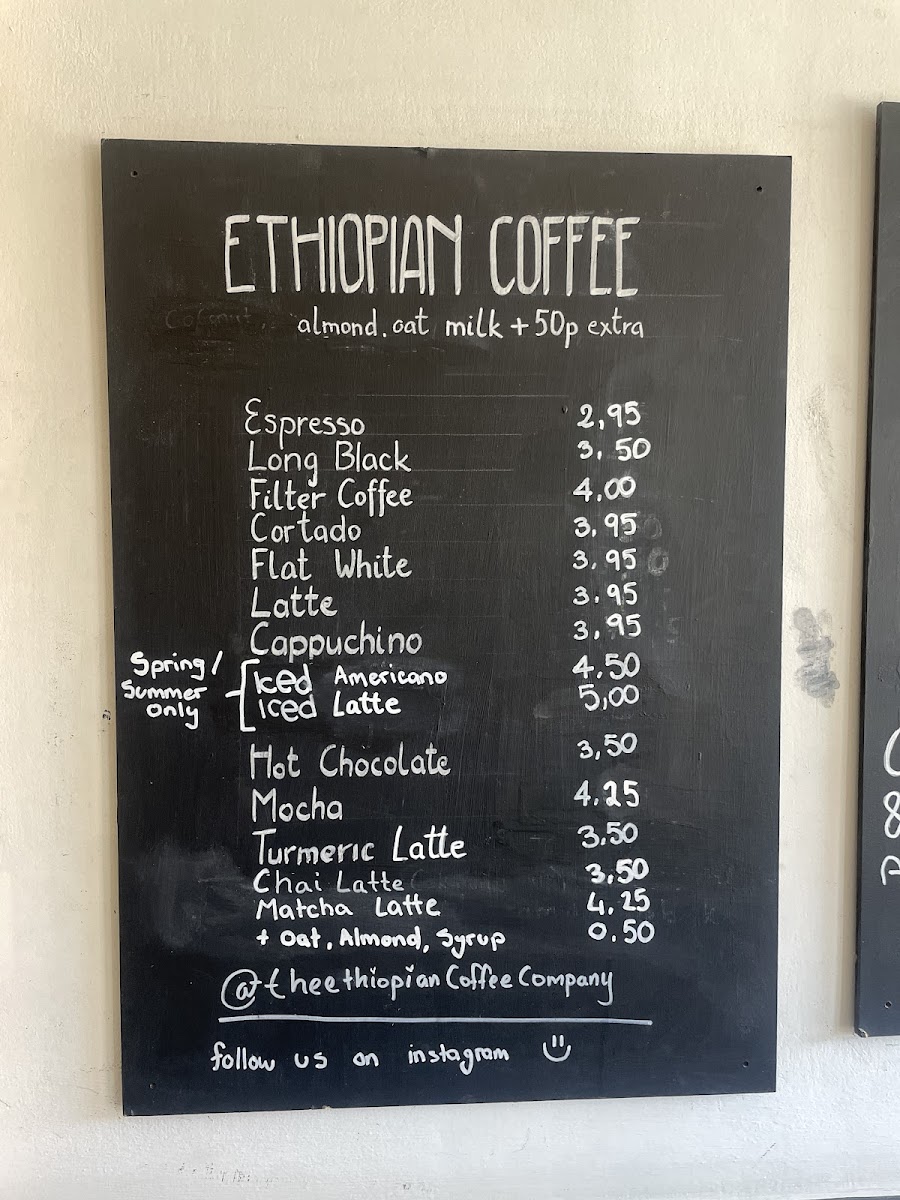 ETHIOPIAN COFFEE
Coconut, almond, oat milk + 50p extra
Espresso 2,95
Long Black 3.50
Filter Coffee 4.00
Cortado 3.95
Flat White 3.95
Latte 3.95
Cappuchino 3.95
Spring/
Summer
only
Iced Americano 4.50
Iced Latte 5,00
Hot Chocolate 3,50
Mocha 4.25
Turmeric Latte 3.50
Chai Latte 3.50
Matcha Latte 4.25
+ Oat, Almond, Syrup 0.50
@theethiopianCoffeeCompany
follow us on instagram